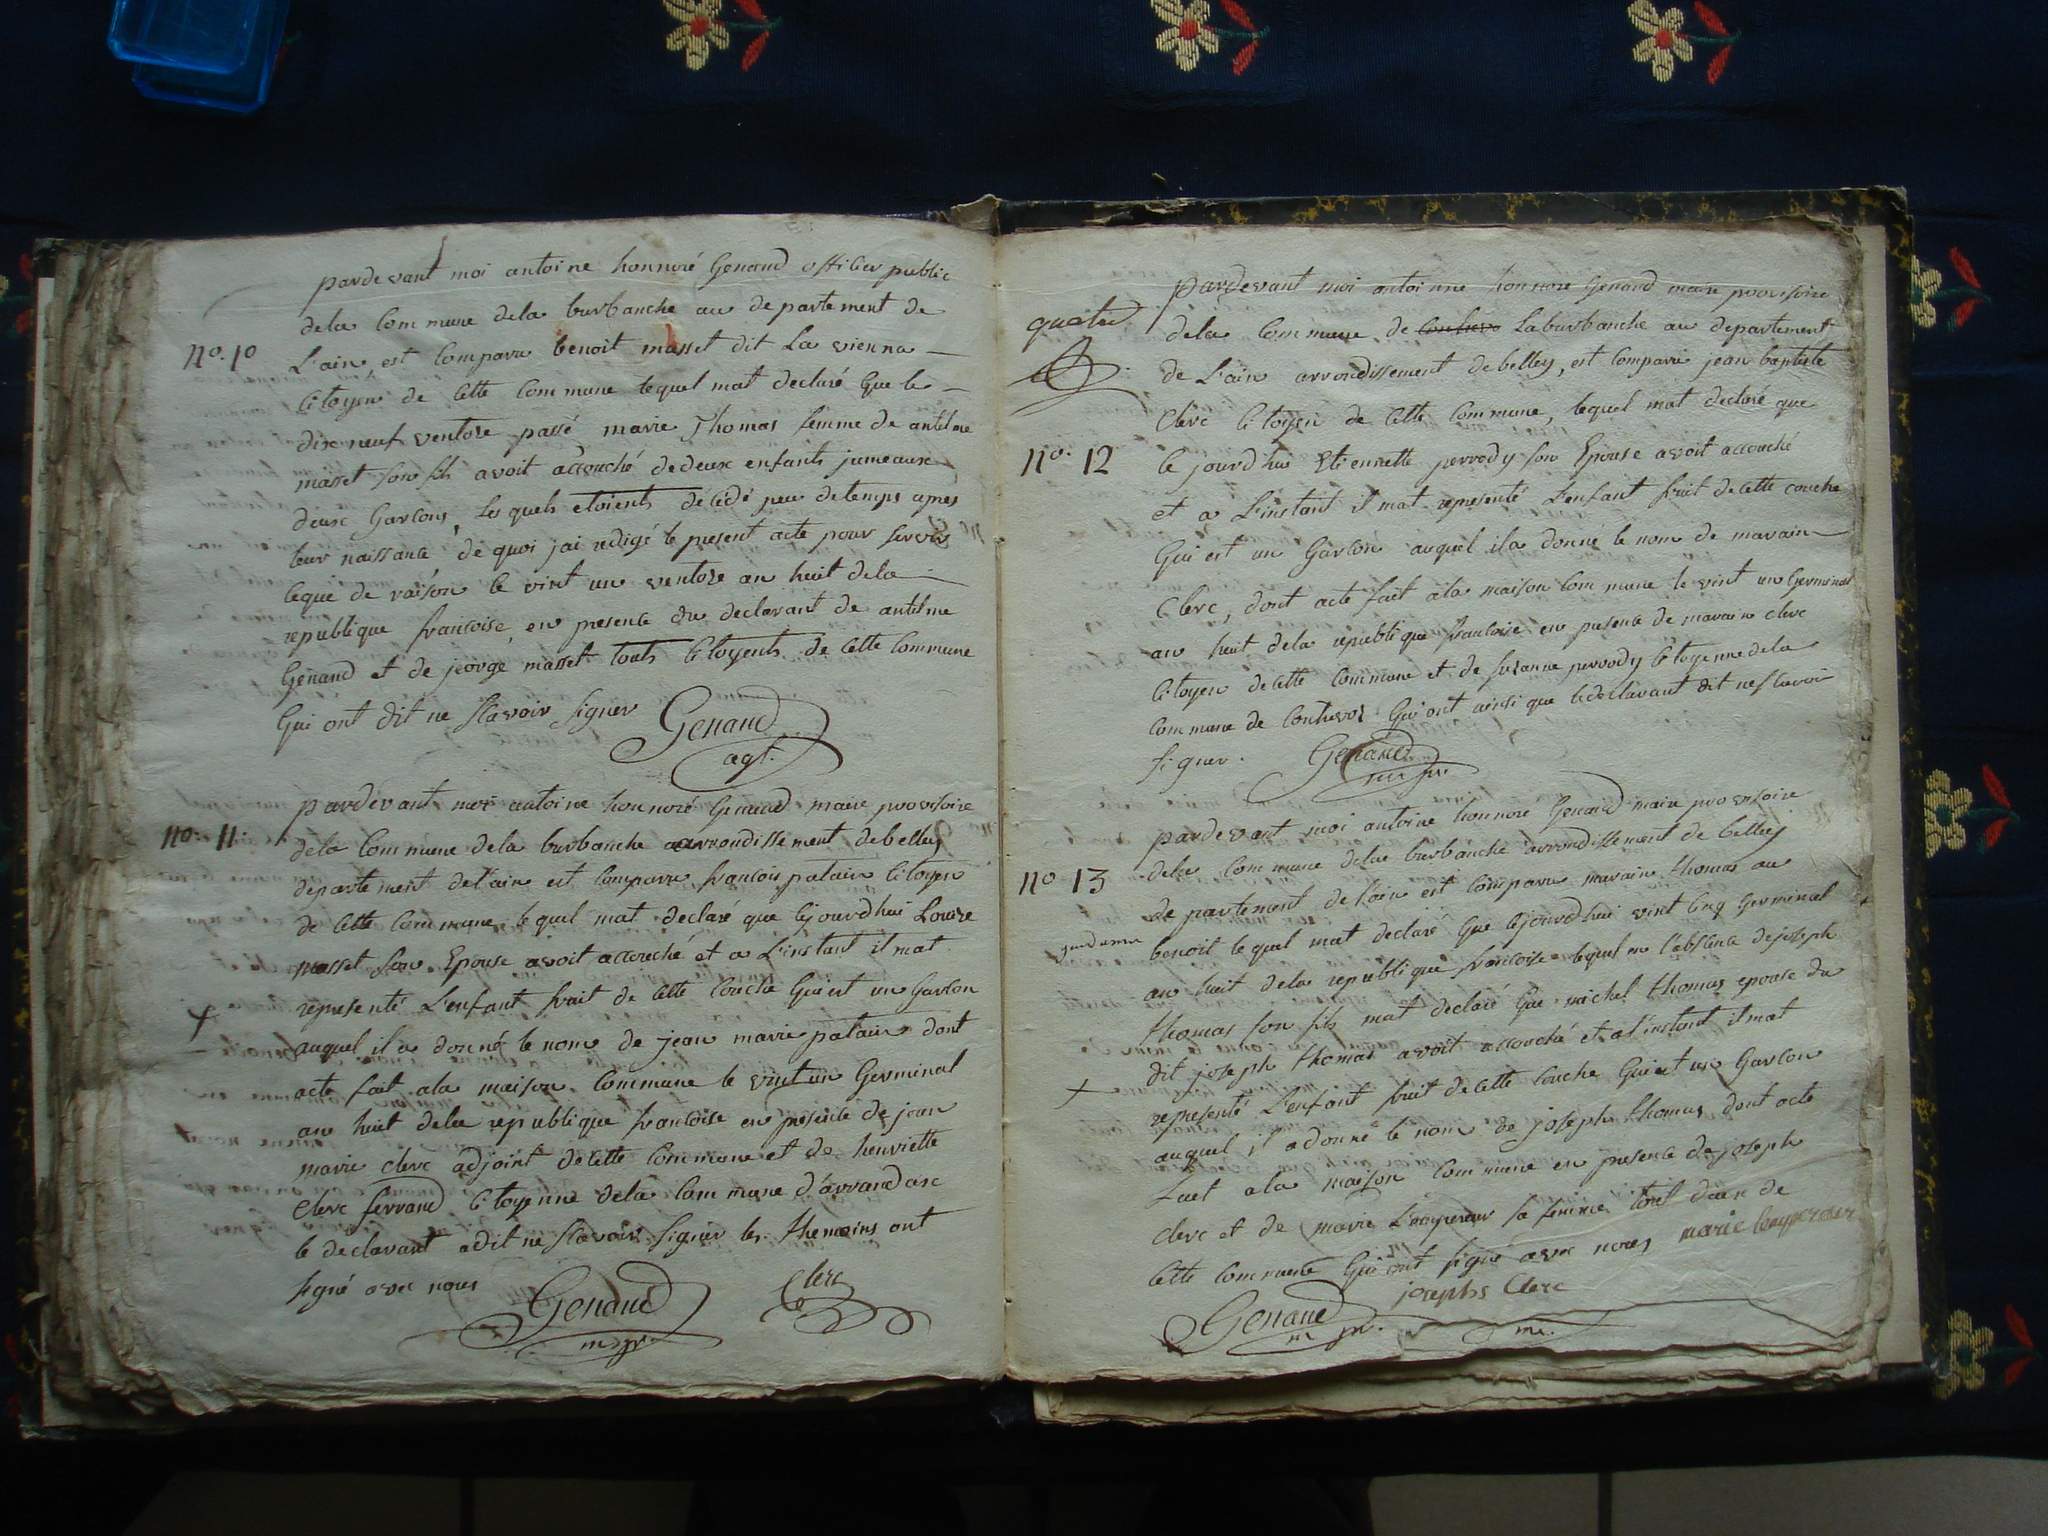 pardevant moi antoine honnoré Genand officier public
dela Commune dela burbanche au departement de
no. 10
L'ain, est Comparu benoit masset dit La vienna
Citoyen de Cette Commune lequel mat declaré Que le
dixneuf ventose passé marie Thomas femme de antelme
masset son fils avoit accouché dedeux enfants jumeaux
deux Garcons, les quels etoients décédé peu detemps apres
leur naissance de quoi jai redigé le present acte pour servir
leque de raison le vint un ventose an huit dela
republique francoise en presence du declarant de antelme
Genand et de jeorge masset touts Citoyents de Cette Commune
Qui ont dit ne scavoir signer
Genand
agt.
no. 11.
pardevant moi antoine honnoré Genand maire provisoire
dela Commune dela burbanche arrondissement debelley
departement del'ain est Comparu francois patain Citoyen
de Cette Commune lequel mat declaré que Cejourdhui Louise
masset son Epouse avoit accouché et a L'instant il mat
representé L'enfant fruit de Cette Couche Qui est un Garcon
auquel il a donné le nom de jean marie patain dont
acte fait ala maison Commune le vint un Germinal
an huit dela republique francoise en presence de jean
marie clerc adjoint decette Commune et de henriette
Clerc ferrand Citoyenne dela Commune d'arrandas
le declarant adit ne scavoir signer les themoins ont
signé avec nous
Genand
m pr.
Clerc
pardevant moi antoinne honnoré Genand maire provisoire
dela Commune de Contrevo Laburbanche au departement
de L'ain arrondissement debelley, est Comparu jean baptiste
Clerc Citoyen de Cette Commune, lequel mat declaré que
no. 12
Ce jourdhui Etiennette perrody son Epouse avoit accouché
et a L'instant il mat representé L'enfant fruit de Cette couche
Qui est un Garcon auquel ila donné le nom de marain
Clerc, dont acte fait ala maison Commune le vint un Germinal
an huit dela republique francoise en presence de marain clerc
Citoyen decette Commune et de susanne perrody Citoyenne dela
Commune de Contrevoz Qui ont ainsi que ledeclarant dit nescavoir
signer.
Genand
m pr.
pardevant moi antoine honnoré Genand maire provisoire
dela Commune dela burbanche arrondissement de belley
no 13
departement de l'ain est Comparu marain thomas au
benoit lequel mat declaré Que Cejourdhui vint Cinq Germinal
an huit dela republique francoise lequel en l'absence dejoseph
thomas son fils mat declaré Que michel thomas epouse du
dit joseph thomas avoit accouché et al'instant il mat
representé L'enfant fruit decette Couche Qui est un Garcon
auquel il adonné le nom de joseph thomas dont acte
fait ala maison Commune en presence de joseph
Clerc et de marie Lempereur sa femme tout deux de
Cette Commune Qui ont signé avec nous marie lempereur
josephs Clerc
Genand
m pr.